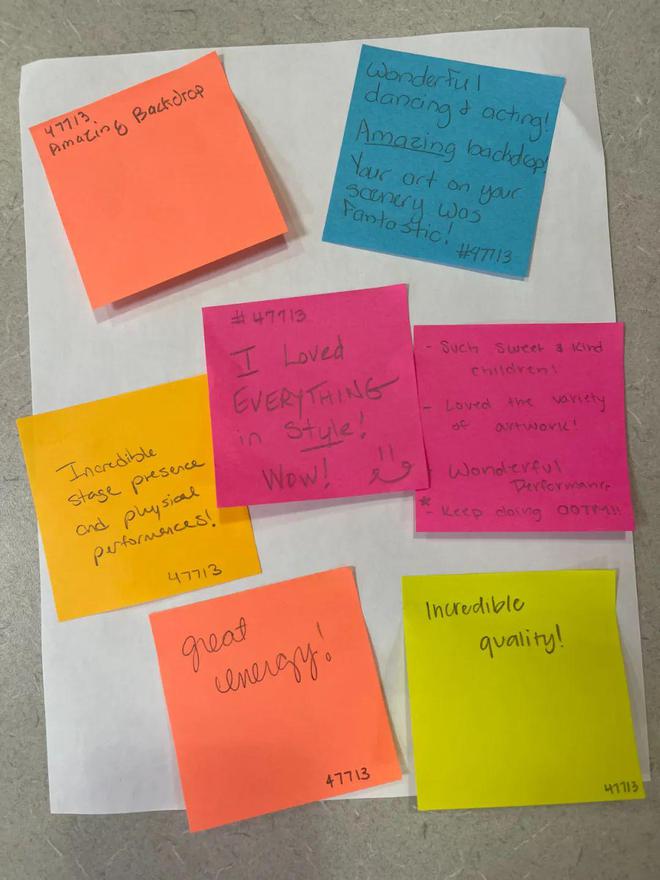 47713.
Amazing Backdrop
Wonderful
dancing & acting!
Amazing backdrop!
Your art on your
scenery was
Fantastic!
#47713
# 47713
I Loved
EVERYTHING
in Style!
Wow!
- Such Sweet & Kind
children!
- Loved the variety
of artwork!
- Wonderful
Performance
* - Keep doing OOTM!!
Incredible
stage presence
and physical
performances!
47713
great
energy!
47713
Incredible
quality!
47713